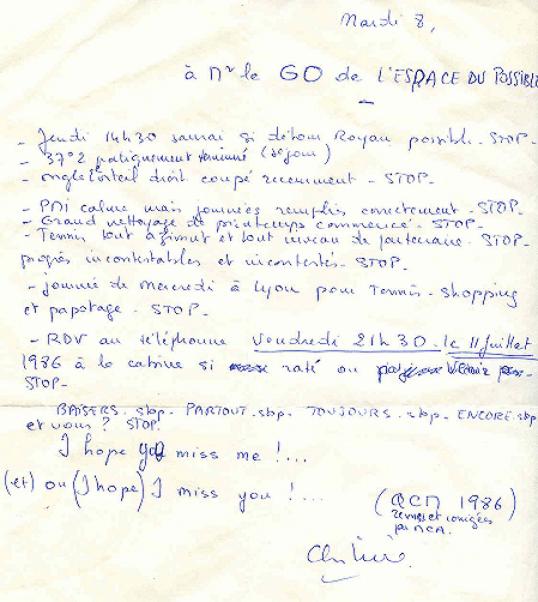 Mardi 8,
à Mr le GO de L'ESPACE DU POSSIBLE
- Jeudi 14h30 saurai si détour Royan possible - STOP -
- 37°2 pratiquement terminé (séjour)
- ongle orteil droit coupé récemment - STOP -
- PMI calme mais journées remplies correctement - STOP -
- Grand nettoyage de printemps commencé - STOP -
- Tennis tout azimut et tout niveau de partenaire - STOP -
progrès incontestables et incontestés - STOP -
- journée de mercredi à Lyon pour Tennis - shopping
et papotage - STOP -
- RDV au téléphone Vendredi 21h30 - le 11 juillet
1986 à la cabine si raté ou
STOP -
BAISERS - stop - PARTOUT - stop - TOUJOURS - stop - ENCORE - stop
et vous ? STOP
I hope you miss me !...
(et) ou (I hope) I miss you !...
(QCM 1986)
revues et corrigées
par MCA.